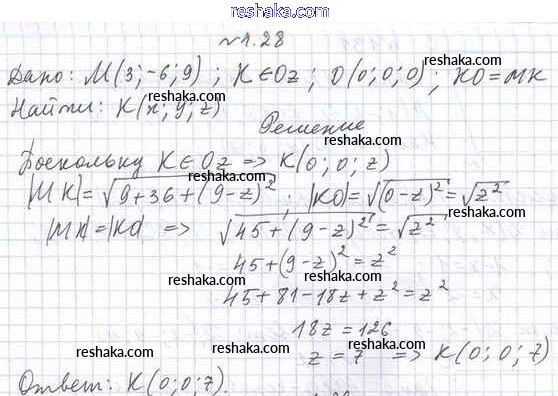 www.reshaka.com
№1.28
Дано: M(3;-6;9) ; K∈Oz ; O(0;0;0) ; KO=MK
reshaka.com
Найти: K(x; y; z)
reshaka.com
Решение
Поскольку K∈Oz => K(0; 0; z)
|MK|=√(9+36+(9-z)²) ; |KO|=√((0-z)²)=√z²
reshaka.com
|MK|=|KO| => √(45+(9-z)²)=√z²
reshaka.com
45+(9-z)²=z²
reshaka.com
reshaka.com
45+81-18z+z²=z²
18z=126
reshaka.com
reshaka.com
z=7 => K(0; 0; 7)
reshaka.com
Ответ: K(0;0;7).